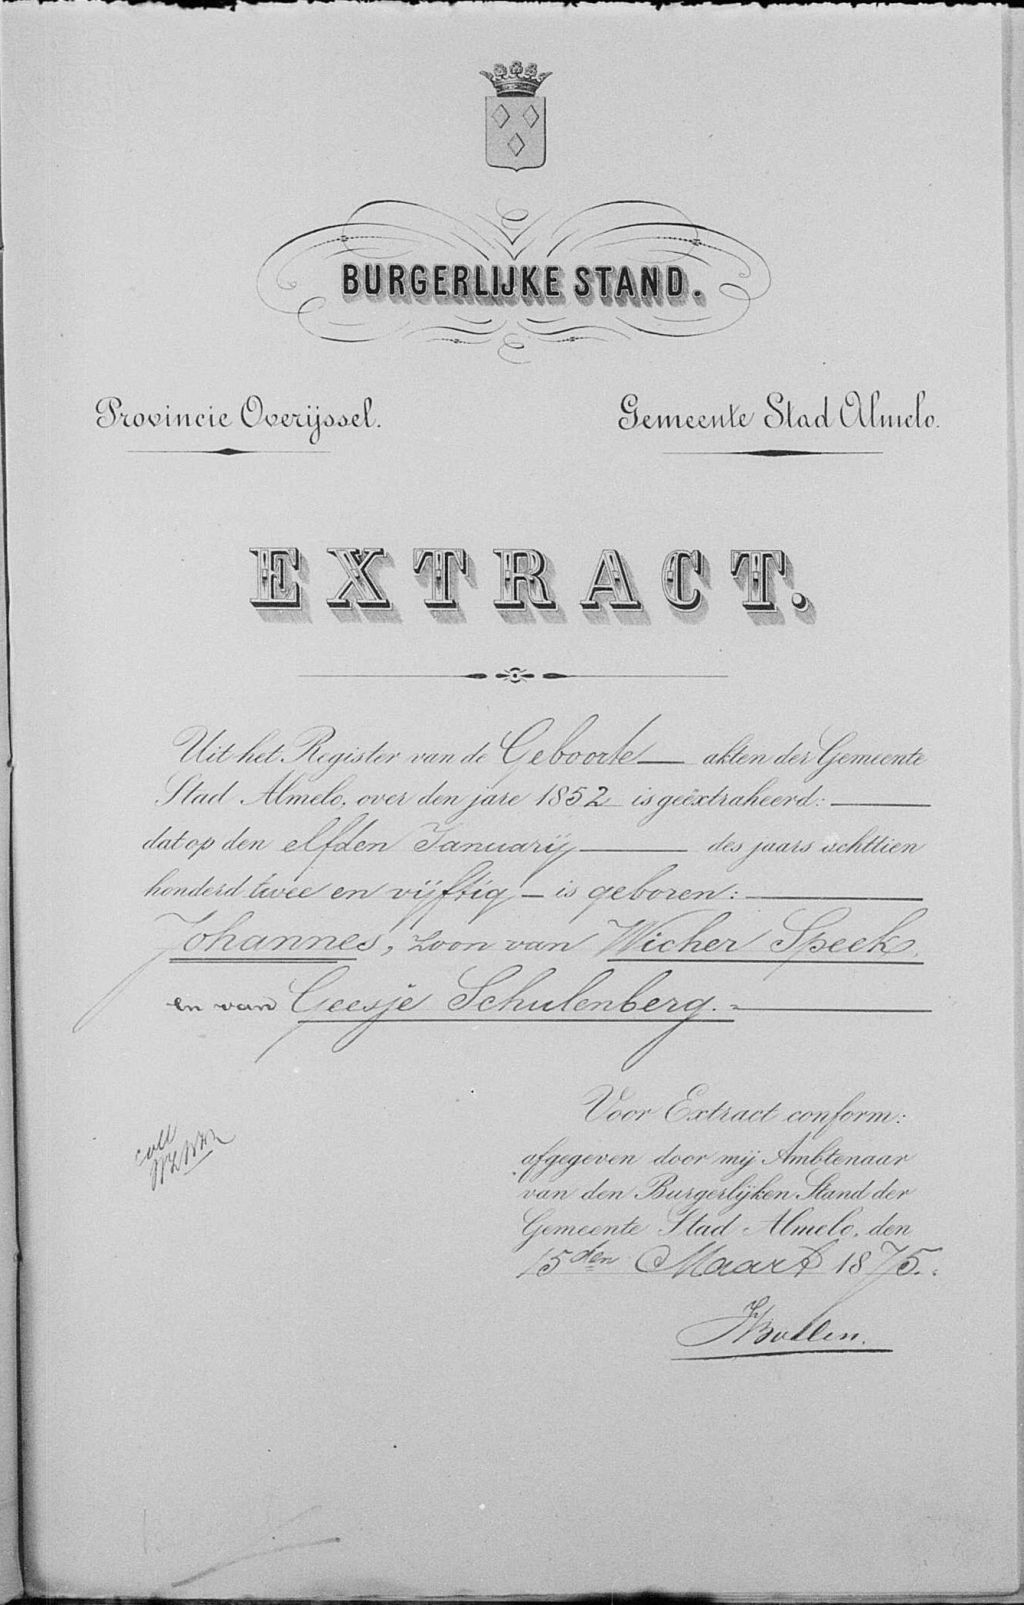 BURGERLIJKE STAND.
Provincie Overijssel.
Gemeente Stad Almelo.
EXTRACT.
Uit het Register van de Geboorte akten der Gemeente
Stad Almelo, over den jare 1852 is geëxtraheerd:
dat op den elfden Januarij des jaars achttien
honderd twee en vijftig is geboren:
Johannes, zoon van Wicher Speek,
en van Geesje Schulenberg.
Voor Extract conform:
afgegeven door mij Ambtenaar
van den Burgerlijken Stand der
Gemeente Stad Almelo, den
15den Maart 1875.
coll